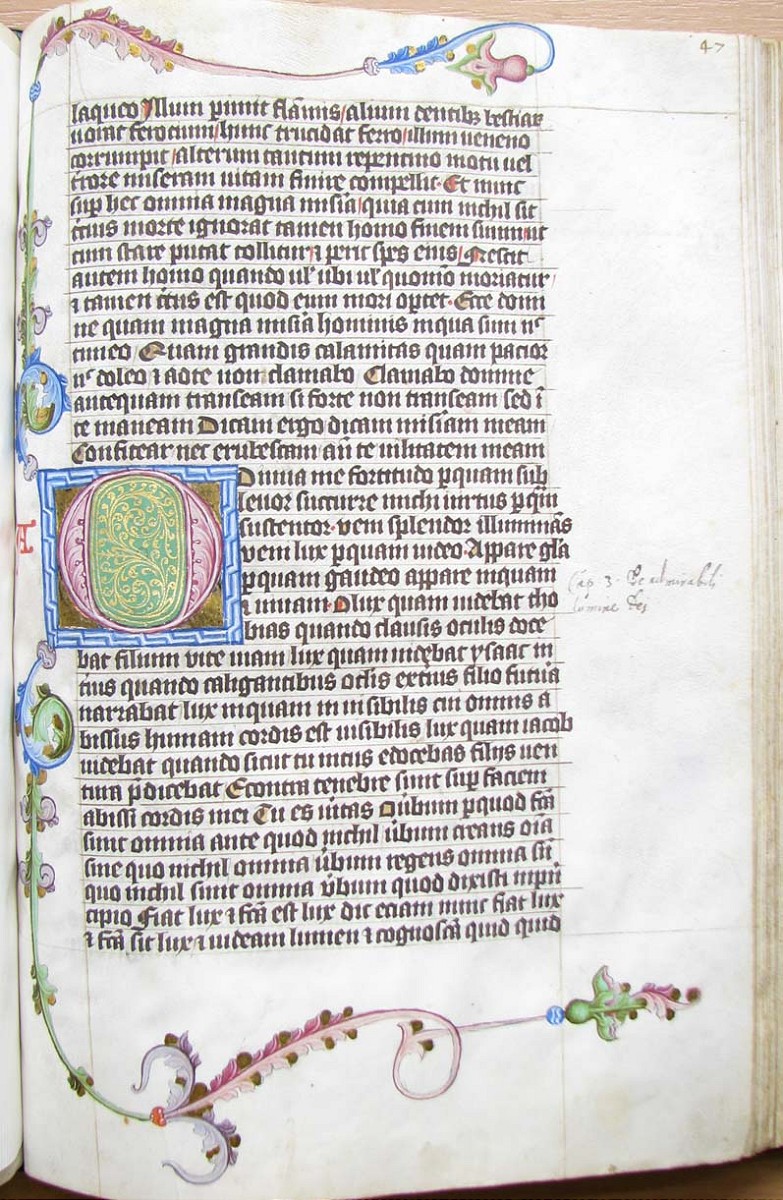 47
laqueo Illum punit flāmis alium dentibꝫ bestiaꝝ
uorat ferocium hunc trucidat ferro illum ueneno
corrumpit alterum tantum repentino motu uel
trore miseram uitam finire compellit Et nunc
suꝑ hec omnia magna mis̄ia quia cum nichil sit
c̄cius morte ignorat tamen homo finem suum ut
cum stare putat tollitur ⁊ perit spes eius Nescit
autem homo quando ul' ubi ul' quomō moriatur
⁊ tamen c̄tus est quod eum mori oꝑtet Ecce domi
ne quam magna mis̄ia hominis inqua sum n̄
timeo Quam grandis calamitas quam pacior
n̄ doleo ⁊ ad te non clamabo Clamabo domine
antequam transeam si forte non transeam sed ī
te maneam Dicam ergo dicam mis̄iam meam
Confitear nec erubescam an̄ te uilitatem meam
Diuua me fortitudo ꝑquam sub
leuor succurre michi uirtus ꝑqm̄
sustentor veni splendor illuminās
veni lux ꝑquam uideo Appare glā
ꝑquam gaudeo appare inquam
⁊ uiuam O lux quam uidebat tho
bias quando clausis oculis doce
bat filium vite uiam lux quam uidebat ysaac in
t̄ius quando caligantibus oclis ext̄ius filio futura
narrabat lux inquam inuisibilis cui omnis a
bissus humani cordis est uisibilis lux quam iacob
uidebat quando sicut tu intus edocebas filijs uen
tura p̄dicebat Econtra tenebre sunt suꝑ faciem
abissi cordis mei Tu es ūitas O ūbum ꝑquod fc̄a
sunt omnia ante quod nichil ūbum creans oīa
sine quo nichil omnia ūbum regens omnia sn̄
quo nichil sunt omnia v̄bum quod dixisti inprī
cipio Fiat lux ⁊ fc̄a est lux dic eciam nunc fiat lux
⁊ fc̄a sit lux ⁊ uideam lumen ⁊ cognoscā quid quid
Cap 3. De admirabili
lumine